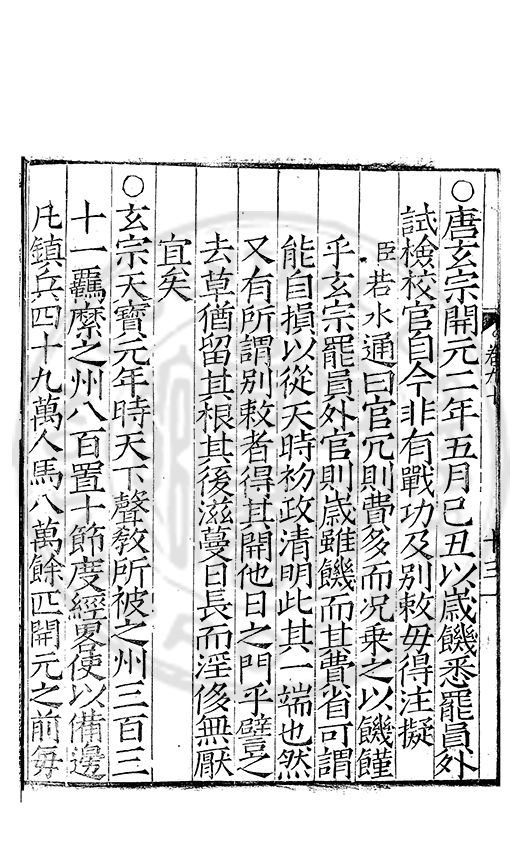 ○唐玄宗開元二年五月己丑以歳饑悉罷員外
試檢校官自今非有戰功及别敕毋得注擬
臣若水通曰官冗則費多而况乗之以饑饉
乎玄宗罷員外官則歳雖饑而其費省可謂
能自損以從天時初政清明此其一端也然
又有所謂别敕者得其開他日之門乎譬之
去草猶留其根其後滋蔓日長而淫侈無厭
宜矣
○玄宗天寶元年時天下聲敎所被之州三百三
十一羈縻之州八百置十節度經畧使以備邊
凡鎮兵四十九萬人馬八萬餘匹開元之前每